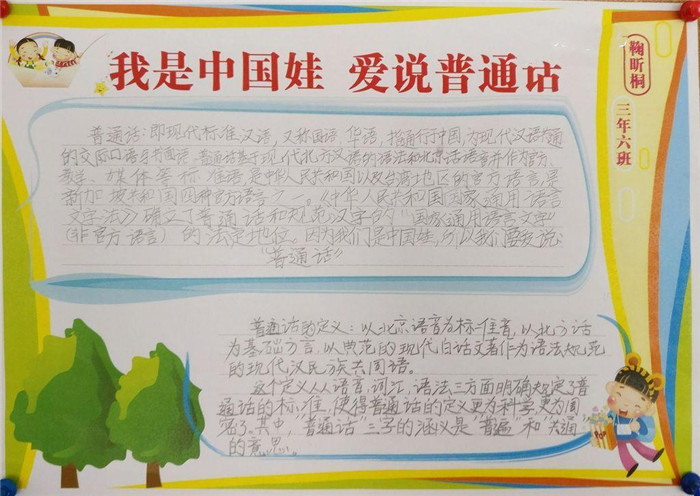 我是中国娃 爱说普通话
鞠昕桐
三年六班
普通话:即现代标准汉语,又称国语、华语,指通行于中国,为现代汉语共通
的交际口语与书面语。普通话基于现代北方汉语的语法和北京话语音并作为官方、
教学、媒体等标准语,是中华人民共和国以及台湾地区的官方语言是
新加坡共和国四种官方语言之一。《中华人民共和国国家通用语言
文字法》确立了普通话和规范汉字的"国家通用语言文字"
(非官方语言)的法定地位。因为我们是中国娃,所以我们要爱说:
"普通话"
普通话的定义:以北京语音为标准音,以北方话
为基础方言,以典范的现代白话文著作为语法规范
的现代汉民族共同语。
这个定义从语音、词汇、语法三方面明确规定了普
通话的标准,使得普通话的定义更为科学更为周
密了。其中,"普通话"三字的涵义是"普遍"和"共通"
的意思。